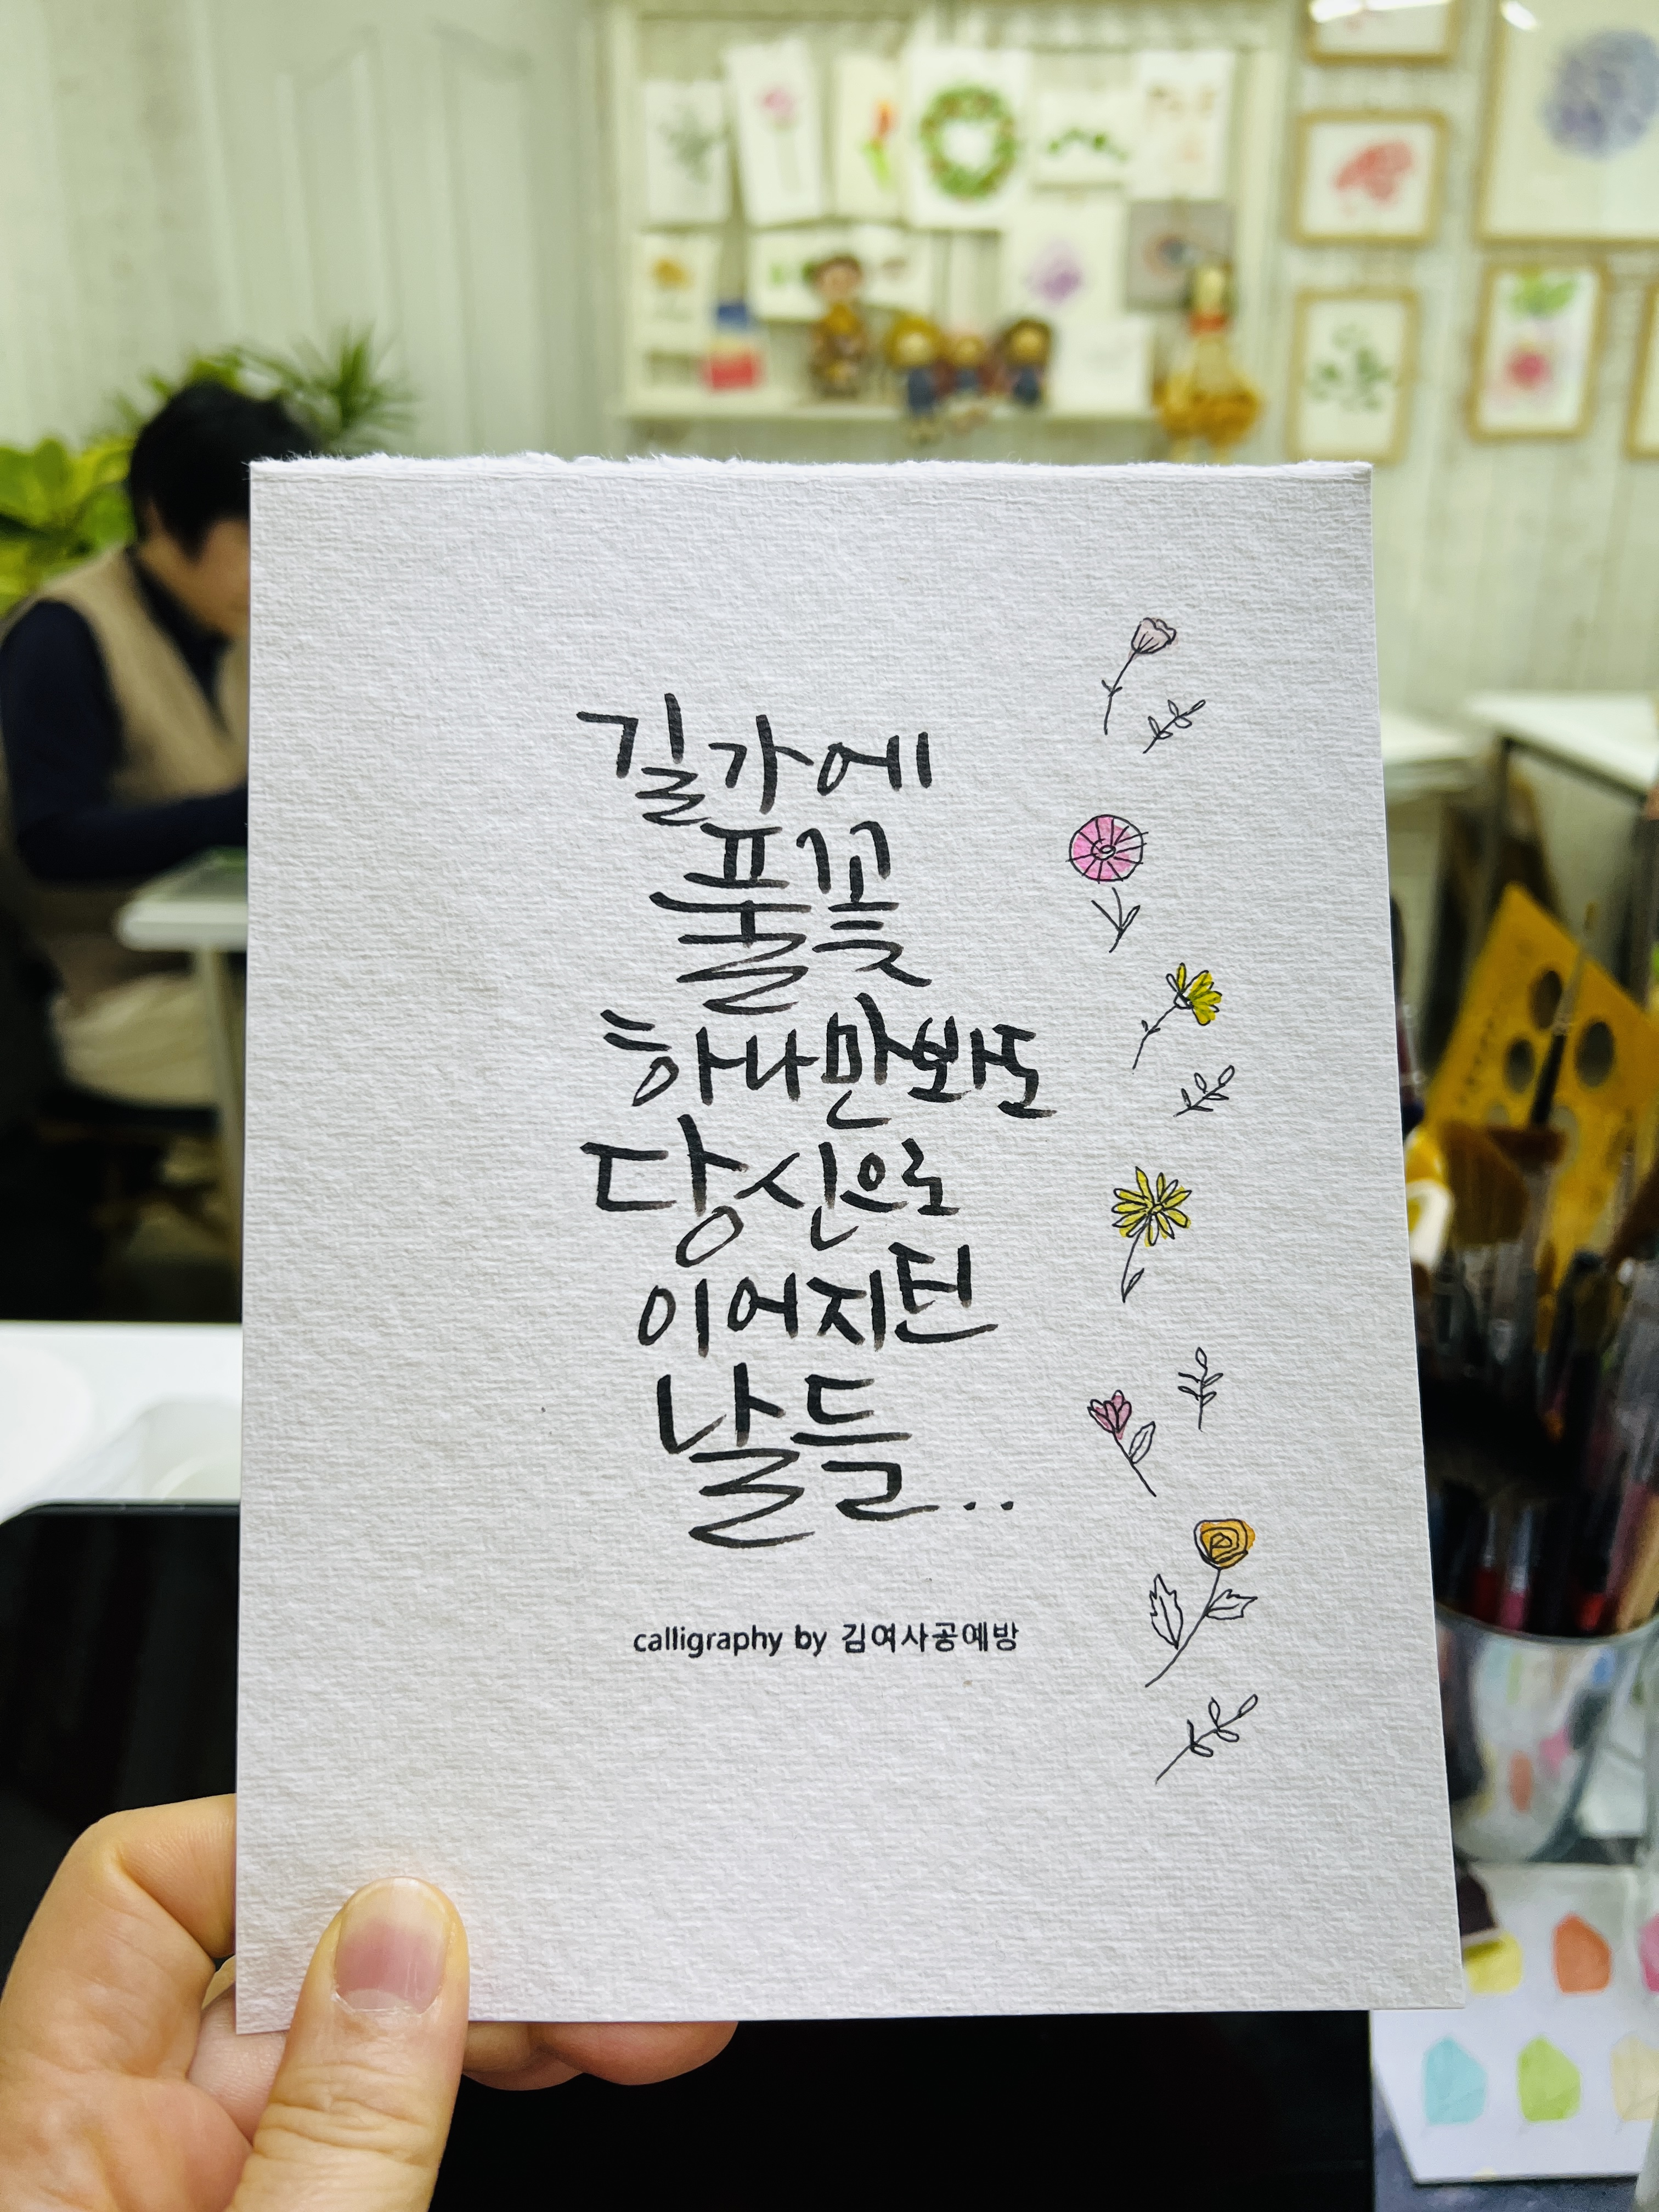 길가에
풀꽃
하나만 봐도
당신으로
이어지던
날들..
calligraphy by 김여사공예방